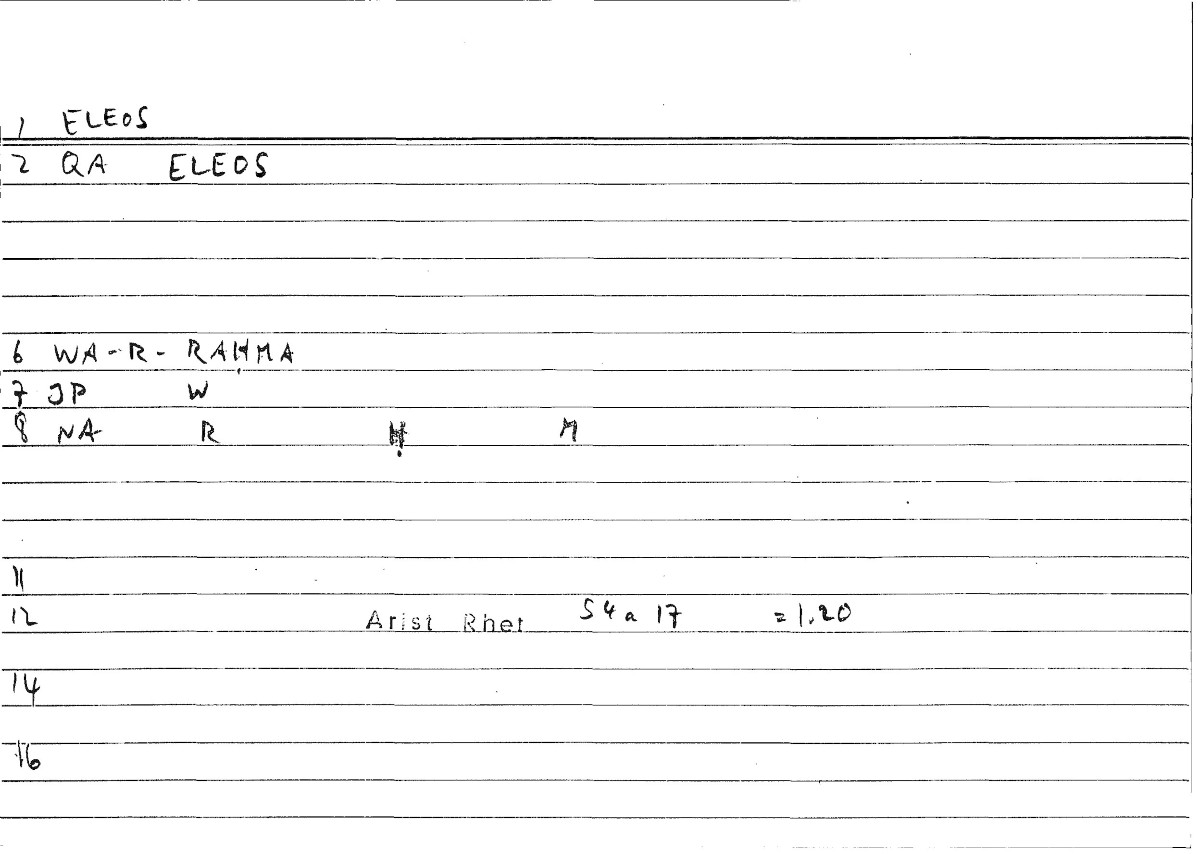 1 ELEOS
2 QA ELEOS
6 WA-R-RAḤMA
7 JP W
8 NA R Ḥ M
11
12 Arist Rhet 54a 17 =1.20
14
16